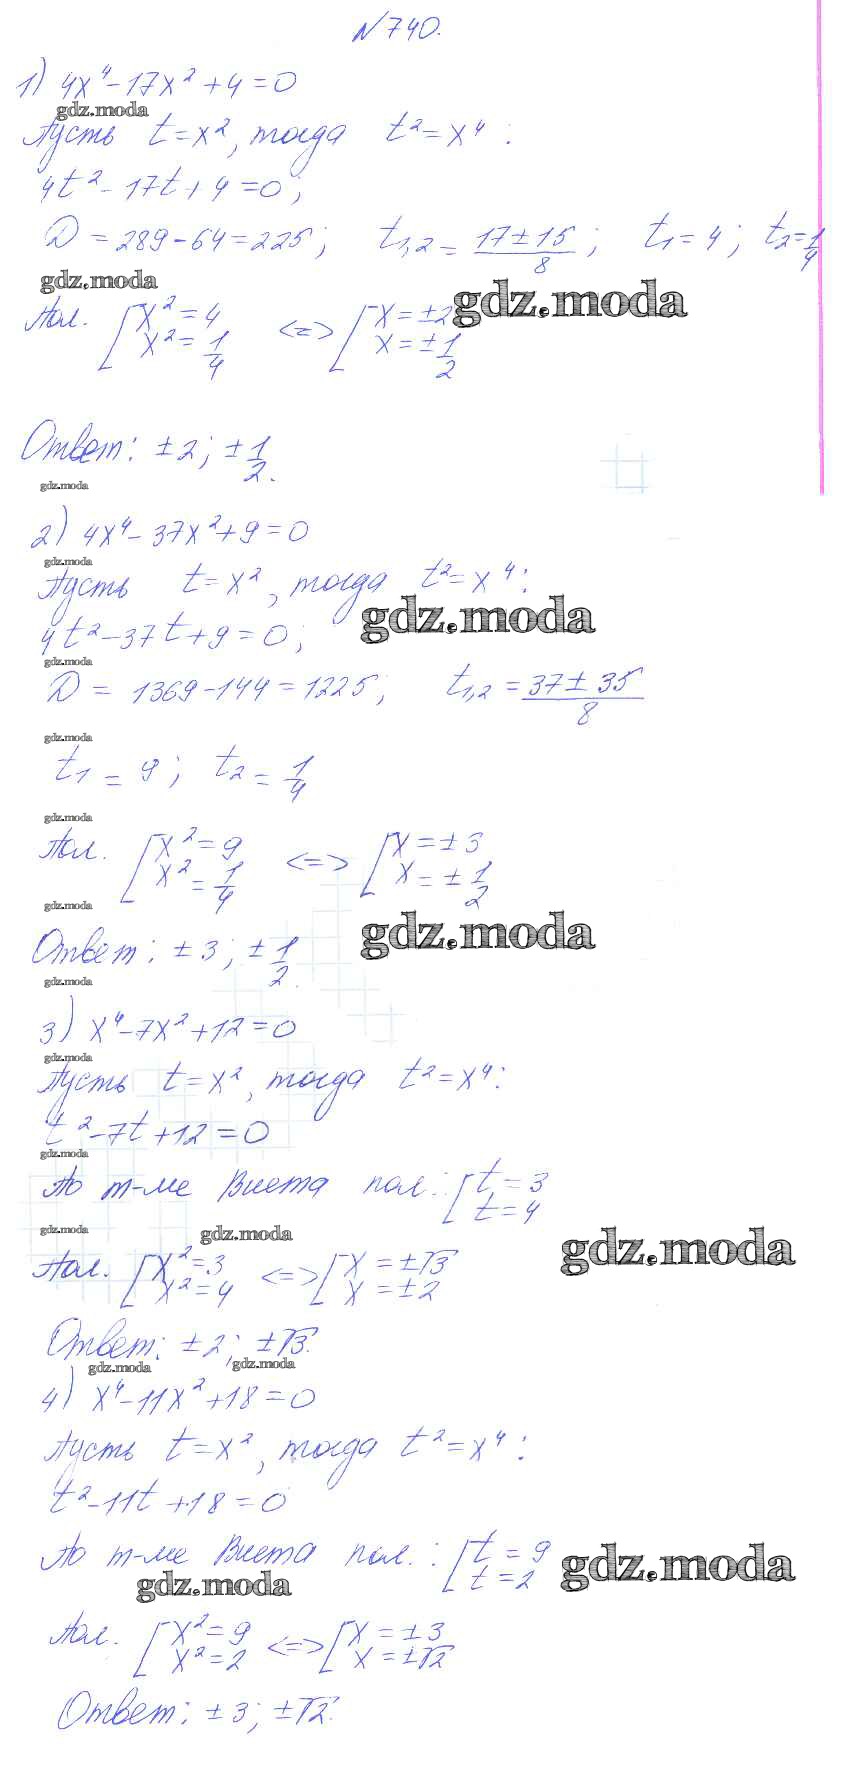 №740.
1) 4x⁴-17x²+4=0
gdz.moda
Пусть t=x², тогда t²=x⁴:
4t²-17t+4=0;
D=289-64=225; t₁,₂=(17±15)/8; t₁=4; t₂=1/4
gdz.moda
gdz.moda
Пол. [x²=4 <=> [x=±2
x²=1/4 x=±1/2
Ответ: ±2; ±1/2.
gdz.moda
2) 4x⁴-37x²+9=0
gdz.moda
Пусть t=x², тогда t²=x⁴:
gdz.moda
4t²-37t+9=0;
gdz.moda
D=1369-144=1225; t₁,₂=(37±35)/8
gdz.moda
t₁=9; t₂=1/4
gdz.moda
Пол. [x²=9 <=> [x=±3
x²=1/4 x=±1/2
gdz.moda
gdz.moda
Ответ: ±3; ±1/2.
gdz.moda
3) x⁴-7x²+12=0
gdz.moda
Пусть t=x², тогда t²=x⁴:
t²-7t+12=0
gdz.moda
По т-ме Виета пол.: [t=3
t=4
gdz.moda
gdz.moda
gdz.moda
Пол. [x²=3 <=> [x=±√3
x²=4 x=±2
Ответ: ±2; ±√3.
gdz.moda
gdz.moda
4) x⁴-11x²+18=0
Пусть t=x², тогда t²=x⁴:
t²-11t+18=0
По т-ме Виета пол.: [t=9
t=2
gdz.moda
gdz.moda
Пол. [x²=9 <=> [x=±3
x²=2 x=±√2
Ответ: ±3; ±√2.